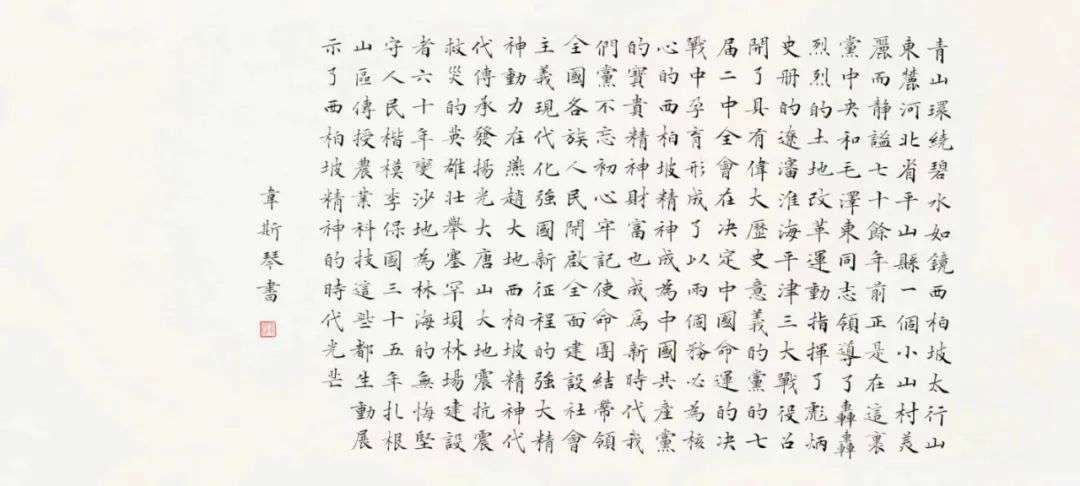 青山環繞碧水如鏡西柏坡太行山
東麓河北省平山縣一個小山村美
麗而静謐七十餘年前正是在這裏
黨中央和毛澤東同志領導了轟轟
烈烈的土地改革運動指揮了彪炳
史册的遼瀋淮海平津三大戰役召
開了具有偉大歷史意義的黨的七
届二中全會在决定中國命運的决
戰中孕育形成了以兩個務必為核
心的西柏坡精神成為中國共產黨
的寶貴精神財富也成爲新時代我
們黨不忘初心牢記使命團結帶領
全國各族人民開啟全面建設社會
主義現代化強國新征程的強大精
神動力在燕趙大地西柏坡精神代
代傳承發揚光大唐山大地震抗震
救災的英雄壯舉塞罕壩林場建設
者六十年變沙地為林海的無悔堅
守人民楷模李保國三十五年扎根
山區傳授農業科技這些都生動展
示了西柏坡精神的時代光芒
韋斯琴書